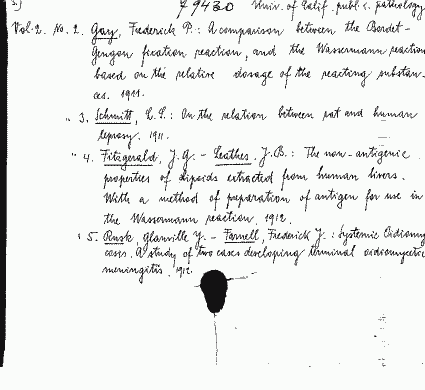 79430 Univ. of Calif. publ. s. pathology
Vol. 2. No. 2. Gay, Frederick P.: A comparison between the Bordet-
Gengou fixation reaction, and the Wassermann reaction
based on the relative dosage of the reacting substan-
ces. 1911.
" 3. Schmitt, L. S.: On the relation between rat and human
leprosy. 1911.
" 4. Fitzgerald, J. G. - Leathes, J. B.: The non-antigenic
properties of lipoids extracted from human livers.
With a method of preparation of antigen for use in
the Wassermann reaction. 1912.
" 5. Rusk, Glanville Y. - Farnell, Frederick J.: Systemic Oidiomy
cosis. A study of two cases developing terminal oidiomycetic
meningitis. 1912.